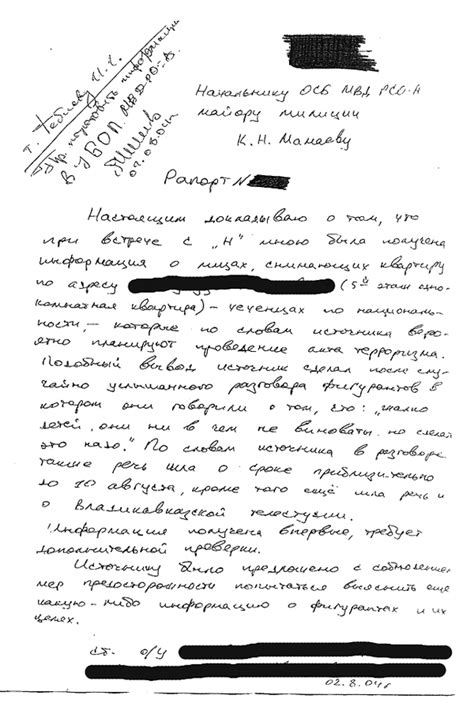 т. Тебиеву И.С.
Пр. направить информацию
в УБОП МВД РСО-А.
02.08.04г.
Начальнику ОСБ МВД РСО-А
майору милиции
К.Н. Мамаеву
Рапорт №
Настоящим докладываю о том, что
при встрече с „Н" мною была получена
информация о лицах, снимающих квартиру
по адресу (5й этаж одно-
комнатная квартира) – чеченцах по националь-
ности, – которые по словам источника веро-
ятно планируют проведение акта терроризма.
Подобный вывод источник сделал после слу-
чайно услышанного разговора фигурантов в
котором они говорили о том, что: „жалко
детей, они ни в чем не виноваты, но сделать
это надо." По словам источника в разговоре
также речь шла о сроке приблизительно
до 10 августа, кроме того ещё шла речь и
о Владикавказской телестудии.
Информация получена впервые, требует
дополнительной проверки.
Источнику было предложено с соблюдением
мер предосторожности попытаться выяснить еще
какую-либо информацию о фигурантах и их
целях.
ст. о/у
02.8.04г